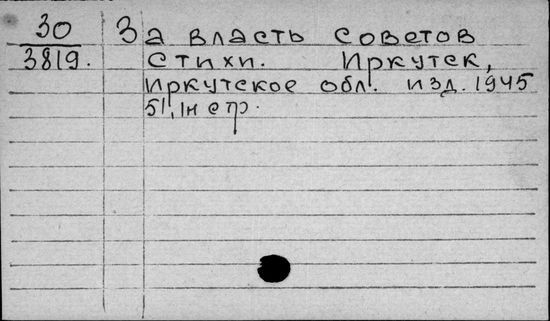 30 За власть советов
3819. Стихи. Иркутск,
Иркутское обл. изд. 1945
51, 1н стр.